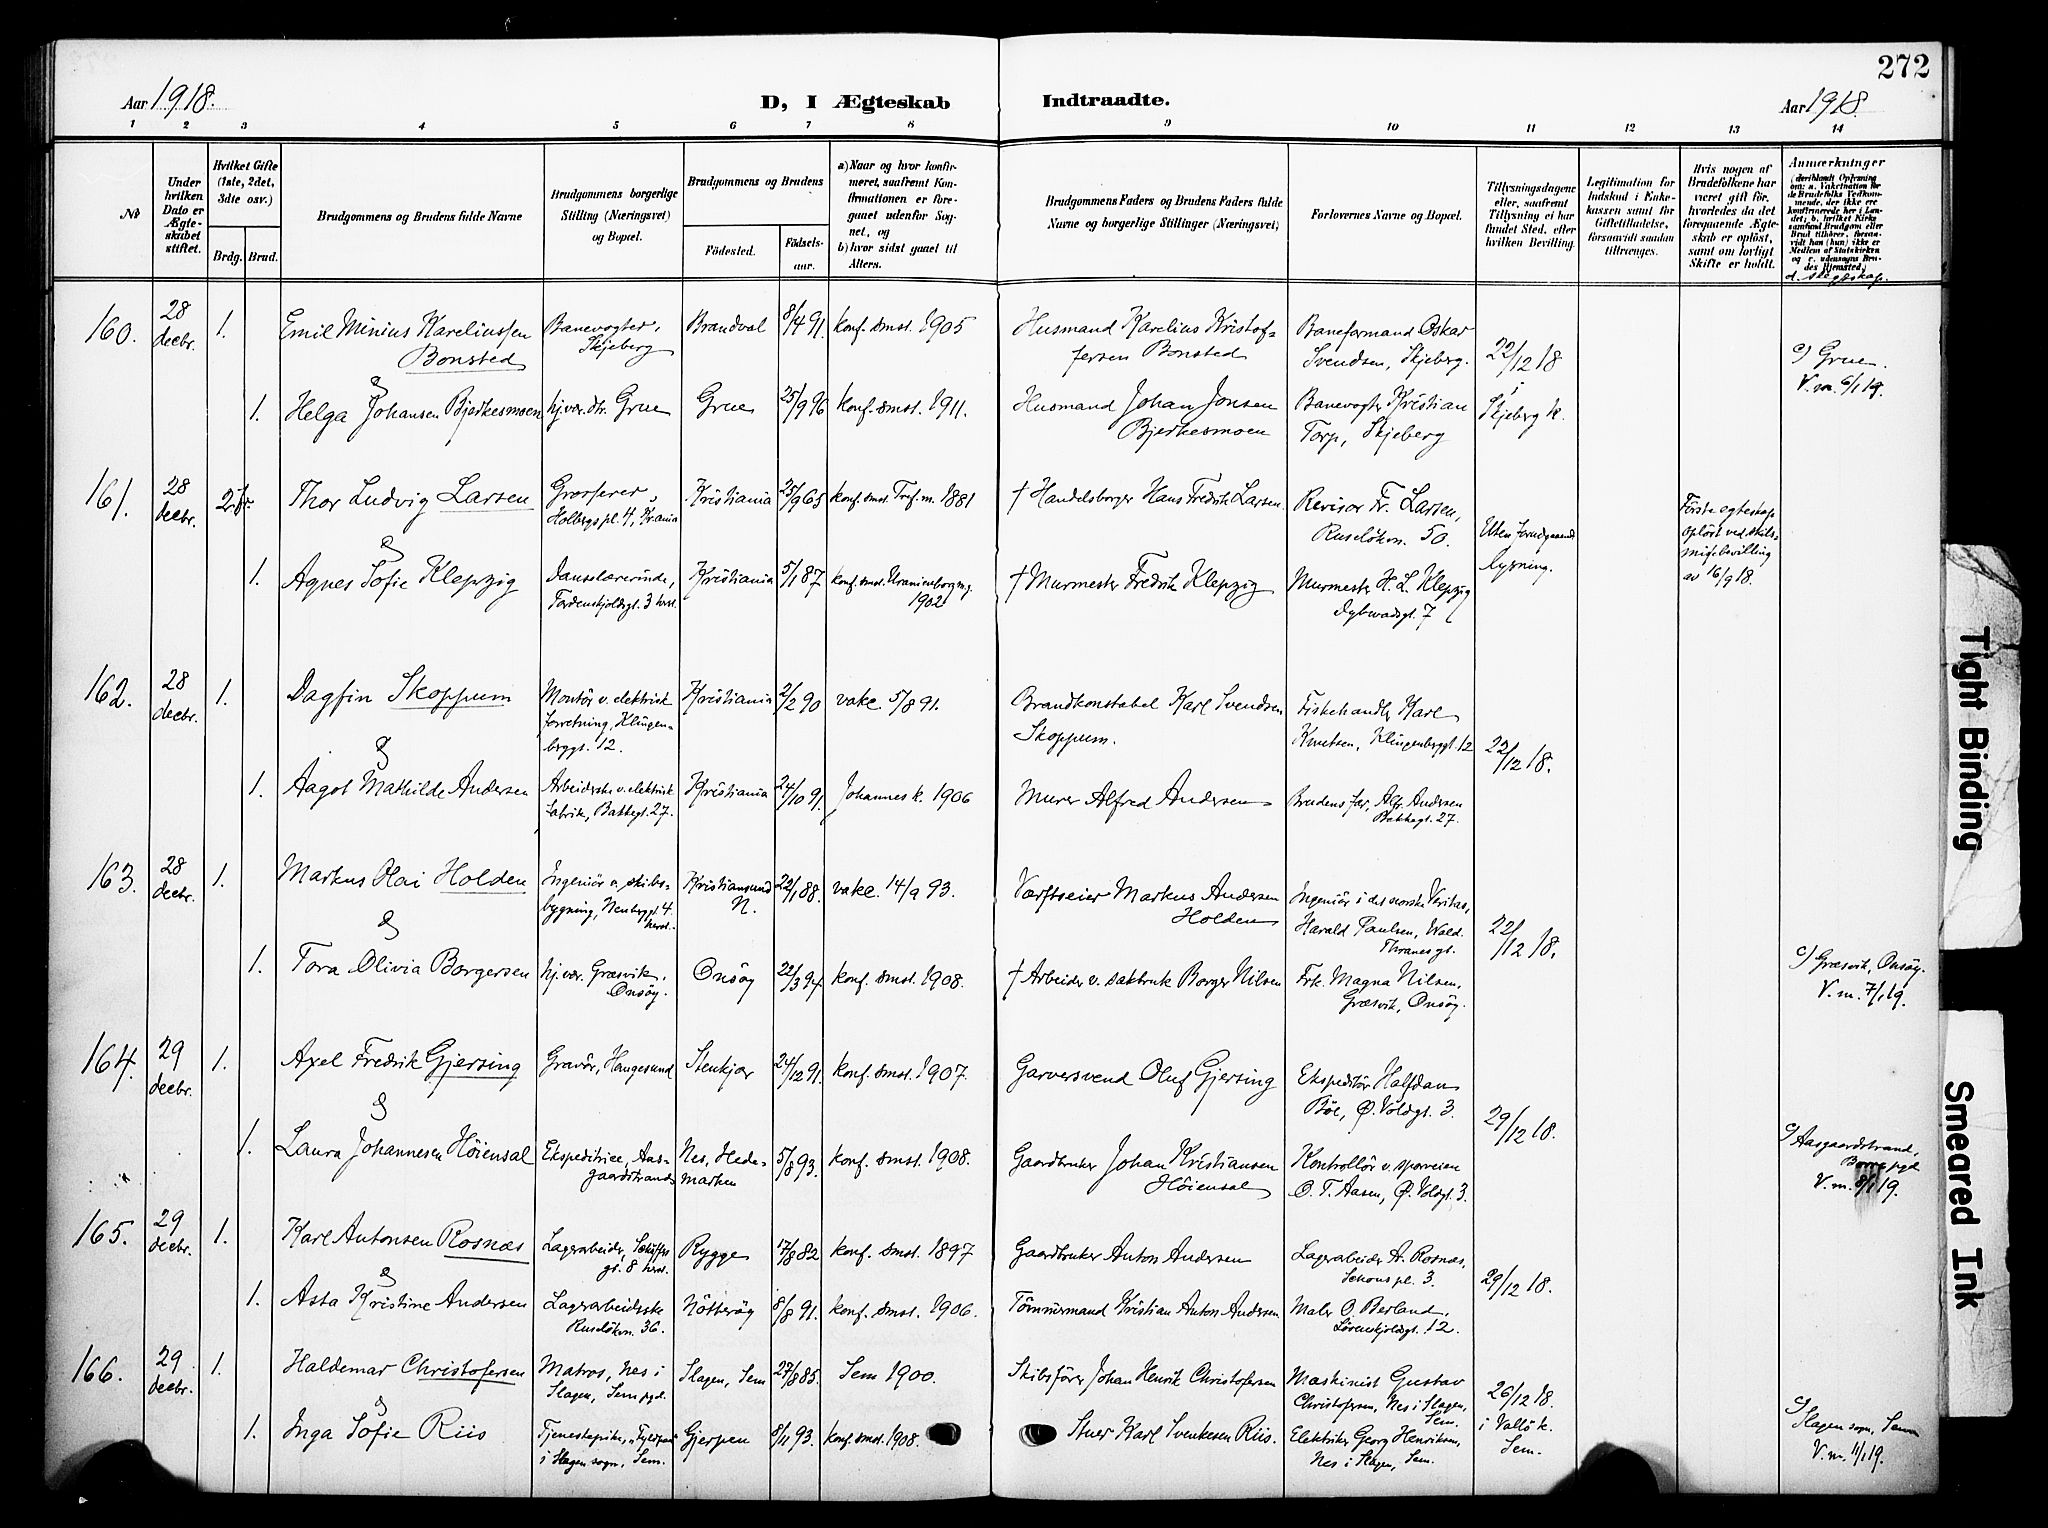 272
Aar 1918. D, I Ægteskab Indtraadte. Aar 1918.
1 2 3 4 5 6 7 8 9 10 11 12 13 14
№
Under hvilken Dato er Ægteskabet stiftet.
Hvilket Gifte (1ste, 2det, 3dte osv.)
Brdg. Brud.
Brudgommens og Brudens fulde Navne
Brudgommens borgerlige Stilling (Næringsvei) og Bopæl.
Brudgommens og Brudens
Fødested. Fødselsaar.
a) Naar og hvor konfirmeret, saafremt Konfirmationen er foregaaet udenfor Sognet, og
b) hvor sidst gaaet til Alters.
Brudgommens Faders og Brudens Faders fulde Navne og borgerlige Stillinger (Næringsvei)
Forlovernes Navne og Bopæl.
Tillysningsdagene eller, saafremt Tillysning ei har fundet Sted, efter hvilken Bevilling.
Legitimation for Indskud i Enkekassen samt for Giftetilladelse, forsaavidt saadan tiltrænges.
Hvis nogen af Brudefolkene har været gift før, hvorledes da det foregaaende Ægteskab er opløst, samt om lovligt Skifte er holdt.
Anmærkninger (deriblandt Oplysning om: a. Vakcination for de Brudefolks Vedkommende, der ikke ere konfirmerede her i Landet; b. hvilket Kirkesamfund Brudgom eller Brud tilhører, forsaavidt han (hun) ikke er Medlem af Statskirken og c. udensogns Brudes Hjemsted.)
d. slegtskap.
160. 28 decbr. 1. Emil Minius Kareliussen Bonsted Banevogter, Skjeberg Brandval 8/4 91. konf. smst. 1905 Husmand Karelius Kristoffersen Bonsted Baneformand Oskar Svendsen, Skjeberg. 22/12 18 i Skjeberg k. c) Grue. V.m. 6/1 19.
&
1. Helga Johansen Bjerkesmoen hj.vær. dtr. Grue Grue 25/9 96 konf. smst. 1911. Husmand Johan Jonsen Bjerkesmoen Banevogter Kristian Torp, Skjeberg
161. 28 decbr. 2. Thor Ludvig Larsen Grosserer, Holbergs pl. 4, Krania Kristiania 25/9 65 konf. smst. Tref. m. 1881 † Handelsborger Hans Fredrik Larsen. Revisor Fr. Larsen, Ruseløkvn. 50. Uten forudgaaende lysning. Første egteskap opløst ved skilsmissebevilling av 16/9 18.
&
1. Agnes Sofie Klepzig Danselærerinde, Tordenskjoldsgt. 3 herst. Kristiania 5/1 87 konf. smst. Uranienborg mg. 1902 † Murmester Fredrik Klepzig Murmester H. L. Klepzig Dybwadsgt. 7
162. 28 decbr. 1. Dagfin Skoppum Montør v. elektrisk forretning, Klingenberggt. 12. Kristiania 2/2 90 vakc. 5/8 91. Brandkonstabel Karl Svendsen Skoppum. Fiskehandler Karl Knutsen, Klingenberggt. 12 22/12 18.
&
1. Aagot Mathilde Andersen Arbeiderske v. elektrisk fabrik, Bakkegt. 27. Kristiania 24/10 91. Johannes k. 1906 Murer Alfred Andersen Brudens far, Alfr. Andersen Bakkegt. 27.
163. 28 decbr. 1. Markus Olai Holden Ingeniør v. skibsbygning, Neuberggt. 4. herst. Kristiansund N. 22/1 88. vakc. 14/9 93. Værftseier Markus Andersen Holden Ingeniør i det norske Veritas, Harald Paulsen, Wald. Thranes gt. 22/12 18.
&
1. Tora Olivia Borgersen hj.vær. Græsvik, Onsøy. Onsøy 22/3 94. konf. smst. 1908. † Arbeider v. sakbruk Borger Nilsen Frk. Magna Nilsen, Græsvik, Onsøy. c) Græsvik, Onsøy. V.m. 7/1 19.
164. 29 decbr. 1. Axel Fredrik Gjersing Gravør, Haugesund Stenkjær 24/12 91. konf. smst. 1907. Garversvend Oluf Gjersing Ekspeditør Halfdan Bøe, Ø. Voldgt. 3. 29/12 18.
&
1. Laura Johannesen Høiensal Ekspeditrice, Aasgaardstrand Nes, Hedemarken 5/8 93. konf. smst. 1908. Gaardbruker Johan Kristiansen Høiensal Kontrollør v. sporveien O. T. Aasen, Ø. Voldgt. 3. c) Aasgaardstrand, Borre pgd. V.m. 8/1 19.
165. 29 decbr. 1. Karl Antonsen Rosnæs Lagerarbeider, gt. 8 herst. Rygge 17/8 82 konf. smst. 1897 Gaardbruker Anton Andersen Lagerarbeider A. Rosnæs, Schous pl. 3. 29/12 18.
&
1. Asta Kristine Andersen Lagerarbeiderske Ruseløkvn. 36. Nøtterøy 8/8 91. konf. smst. 1906. Tømmermand Kristian Anton Andersen Maler O. Berland, Løvenskjoldsgt. 12.
166. 29 decbr. 1. Haldemar Christofersen Matros, Nes i Slagen, Sem pgd. Slagen, Sem 27/8 85. Sem 1900. Skibsfører Johan Henrik Christofersen Maskinist Gustav Christofersen, Nes i Slagen, Sem. 26/12 18. i Valløk. Sem.
&
1. Inga Sofie Riis Tjenestepike, i Slagen sogn, Sem. Gjerpen 8/11 93. konf. smst. 1908. Stuer Karl Svenkesen Riis. Elektriker Georg Henriksen, Nes i Slagen, Sem. c) Slagen sogn, Sem V.m. 11/1 19.
Tight Binding
Smeared Ink